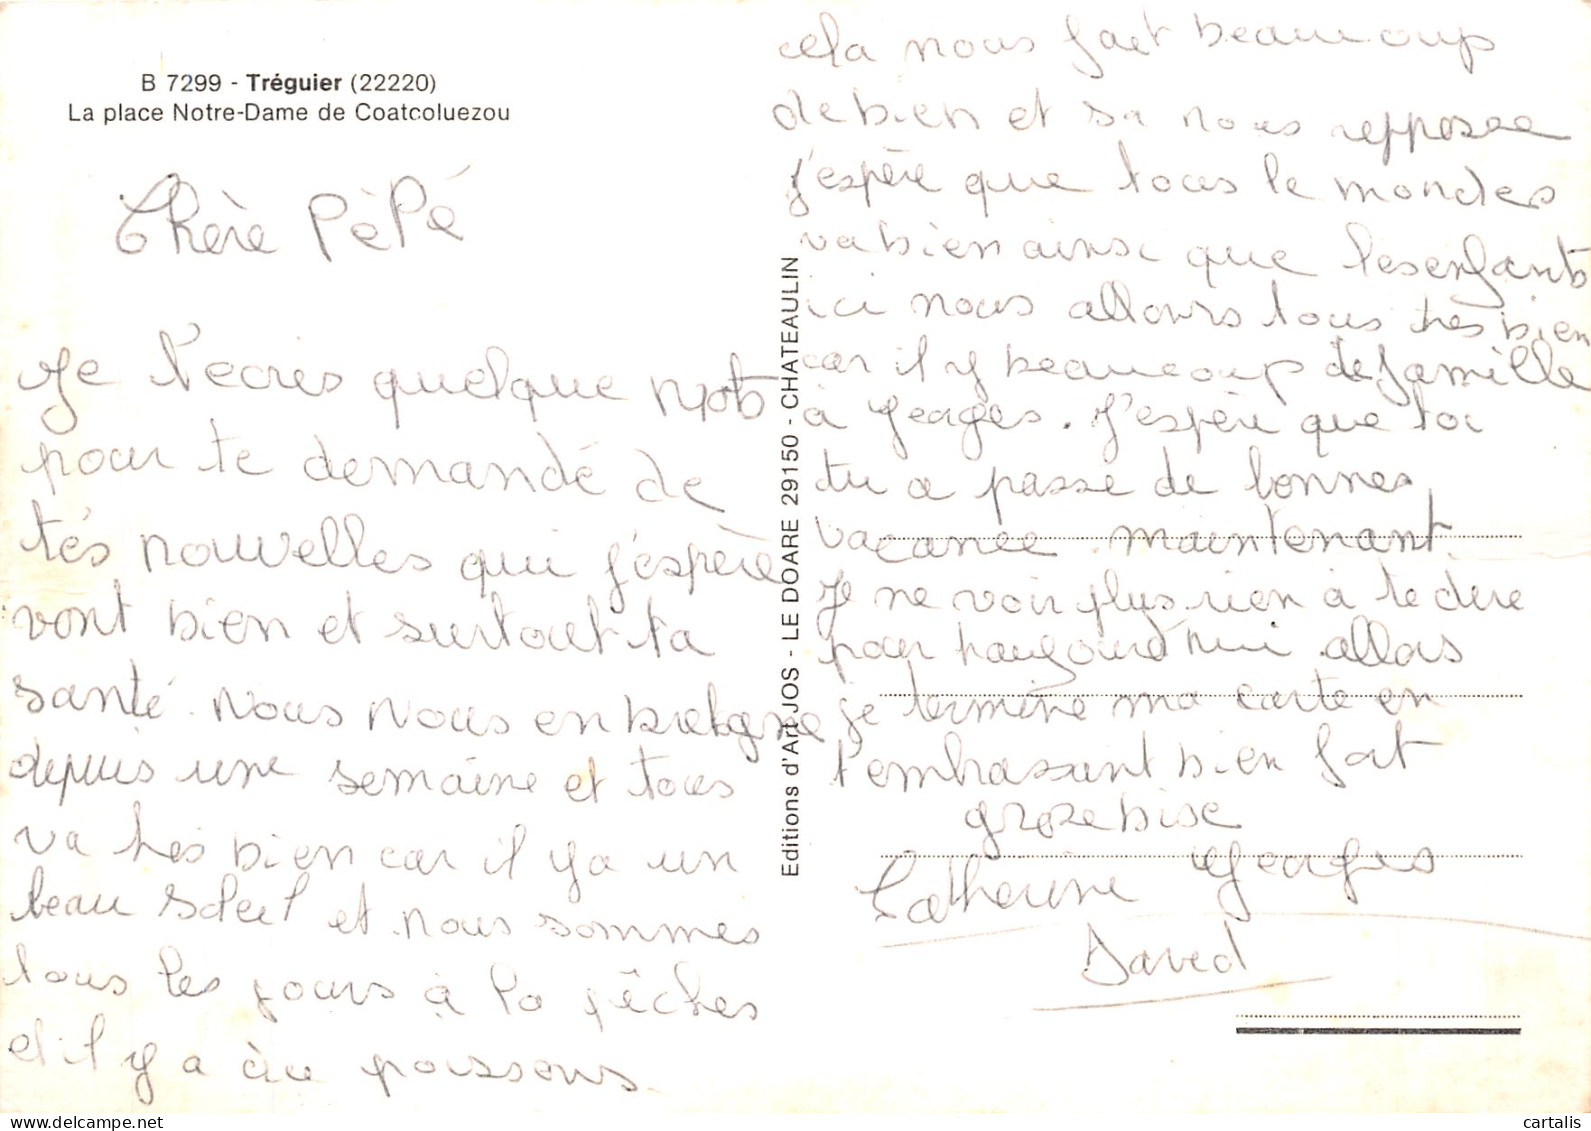 B 7299 - Tréguier (22220)
La place Notre-Dame de Coatcoluezou
Chère Pèpé
Je t'ecris quelque mots
pour te demandé de
tés nouvelles qui j'espère
vont bien et surtout ta
santé. Nous Nous en bretagne
depuis une semaine et tous
va très bien car il ya un
beau soleil et nous sommes
tous les jours à la pêches
et il y a du poissons.
Editions d'Art JOS - LE DOARE 29150 - CHATEAULIN
cela nous fait beaucoup
de bien et sa nous repposee
j'espère que tous le mondes
va bien ainsi que les enfants
ici nous allons tous très bien
car il y beaucoup de famille
à Georges. J'espère que toi
tu a passé de bonnes
vacanee maintenant.
Je ne voir plus rien à te dire
pour haujourd'hui allors
je termine ma carte en
t'embrassant bien fort
grosse bise
Catherine Georges
David
cartalis
delcampe.net